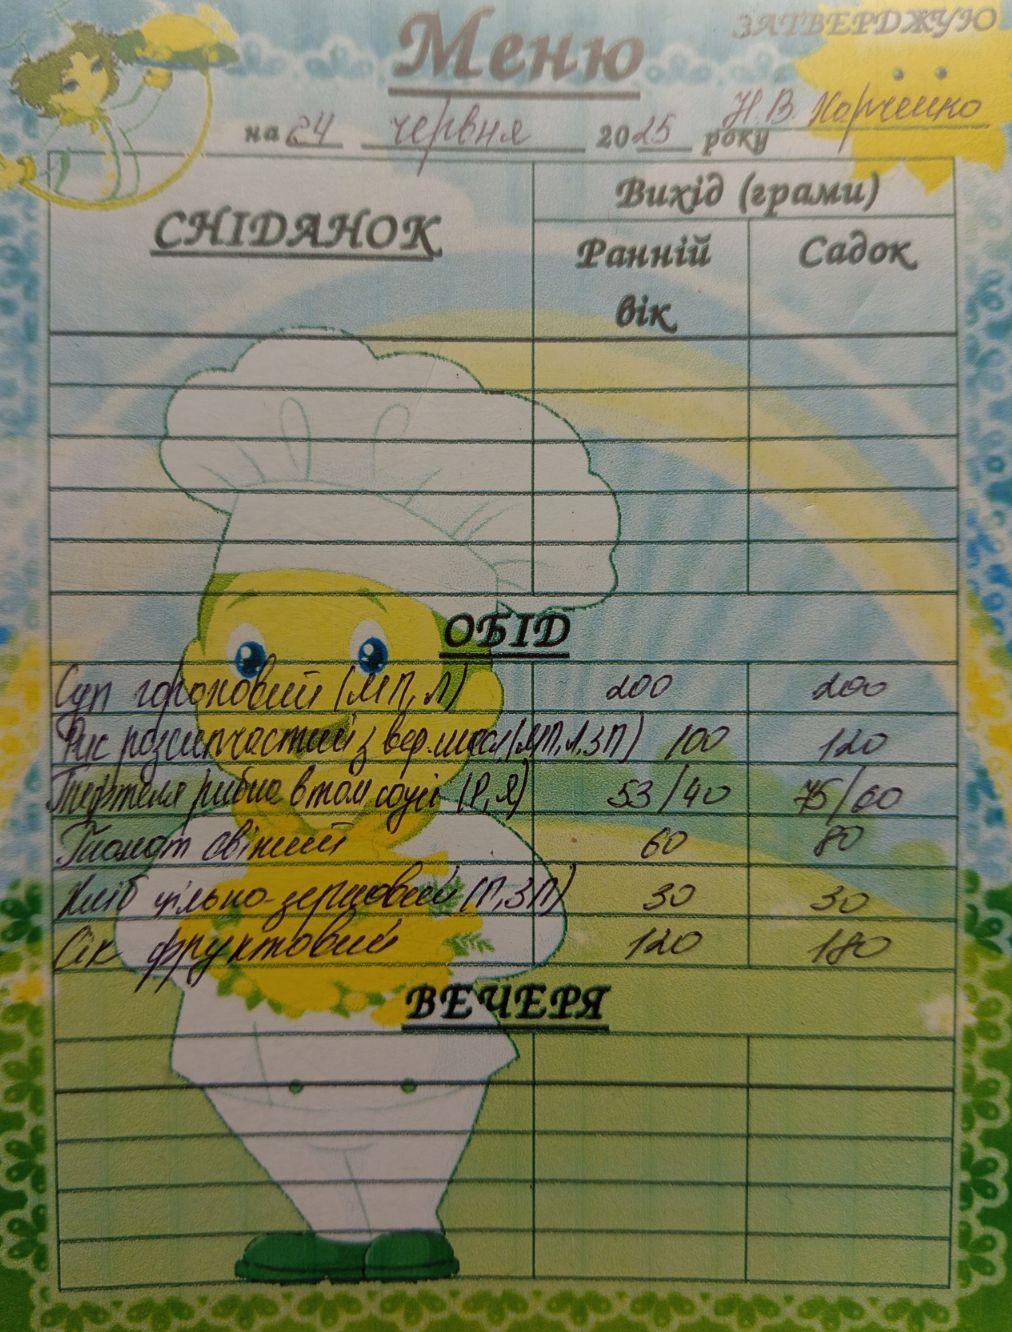 Меню
ЗАТВЕРДЖУЮ
Н.В. Харченко
на 24 червня 2025 року
СНІДАНОК
Вихід (грами)
Ранній вік
Садок
ОБІД
Суп гороховий (МП, Л) 200 200
Рис розсипчастий з вер.масл (МП, Л, ЗП) 100 120
Тефтеля рибна в том соусі (Р, Я) 53/40 75/60
Томат свіжий 60 80
Хліб цільно-зерновий (П, ЗП) 30 30
Сік фруктовий 120 180
ВЕЧЕРЯ